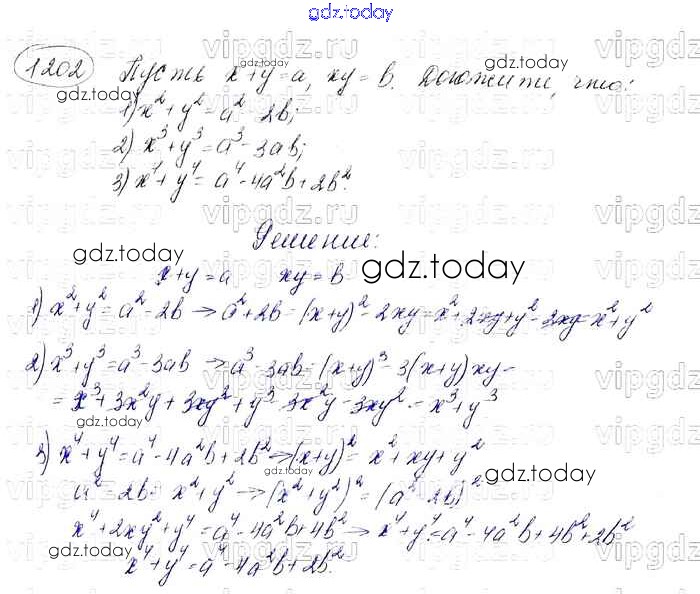 gdz.today
1202 Пусть x+y=a, xy=b. Докажите, что:
1) x²+y²=a²-2b;
2) x³+y³=a³-3ab;
3) x⁴+y⁴=a⁴-4a²b+2b².
Решение:
x+y=a xy=b
1) x²+y²=a²-2b → a²+2b=(x+y)²-2xy=x²+2xy+y²-2xy=x²+y²
2) x³+y³=a³-3ab → a³-3ab=(x+y)³-3(x+y)xy-
=x³+3x²y+3xy²+y³-3x²y-3xy²-x³+y³
3) x⁴+y⁴=a⁴-4a²b+2b² → (x+y)²=x²+xy+y²
a²-2b=x²+y² → (x²+y²)²=(a²-2b)²
x⁴+2xy²+y⁴=a⁴-4a²b+4b² → x⁴+y⁴=a⁴-4a²b+4b²+2b²
x⁴+y⁴=a⁴-4a²b+2b².